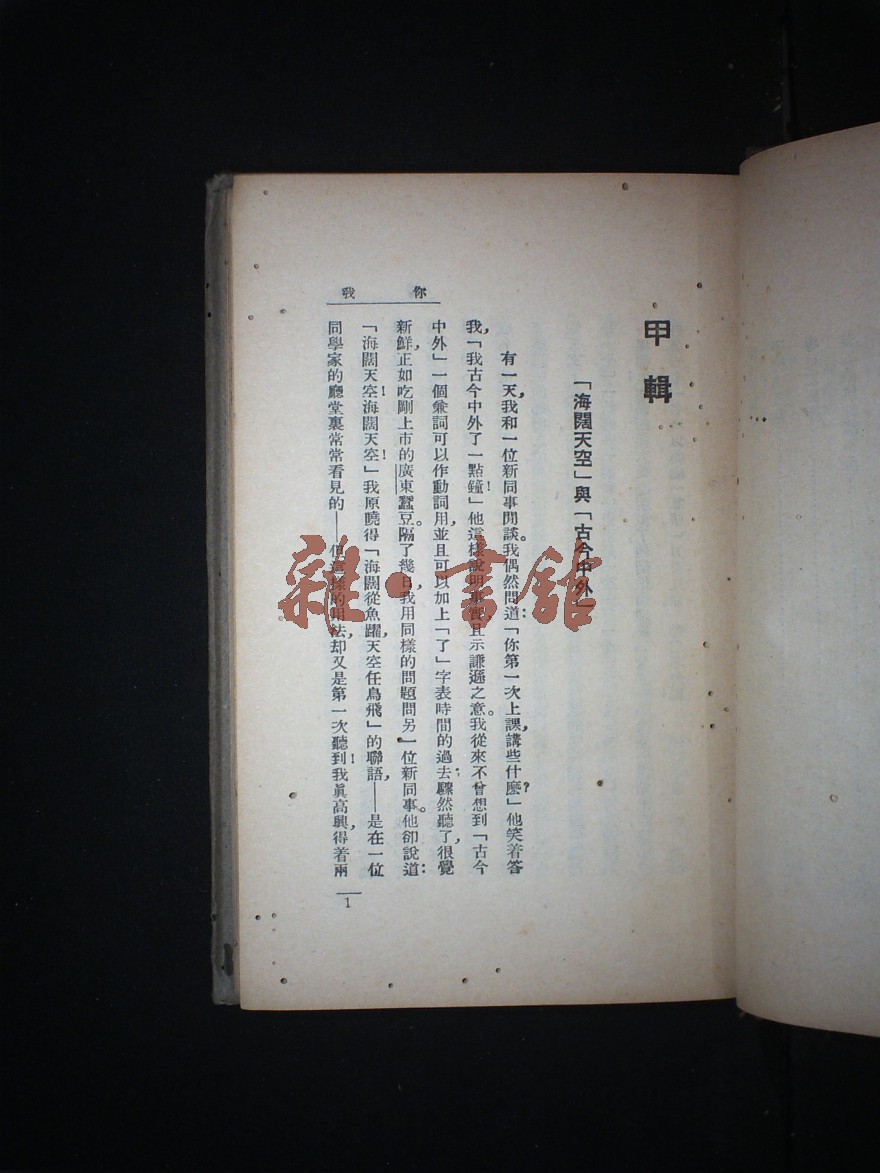 甲輯
「海闊天空」與「古今中外」
有一天，我和一位新同事閒談。我偶然問道：「你第一次上課，講些什麼？」他笑着答
我，「我古今中外了一點鐘！」他這樣說明事實，且示謙遜之意。我從來不曾想到「古今
中外」一個兼詞可以作動詞用，並且可以加上「了」字表時間的過去；驟然聽了，很覺
新鮮，正如吃剛上市的廣東蠶豆。隔了幾日，我用同樣的問題問另一位新同事。他卻說道：
「海闊天空！海闊天空！」我原曉得「海闊從魚躍，天空任鳥飛」的聯語，——是在一位
同學家的廳堂裏常常看見的——但這樣的用法，却又是第一次聽到！我眞高興，得着兩
你我
1
雜·書館